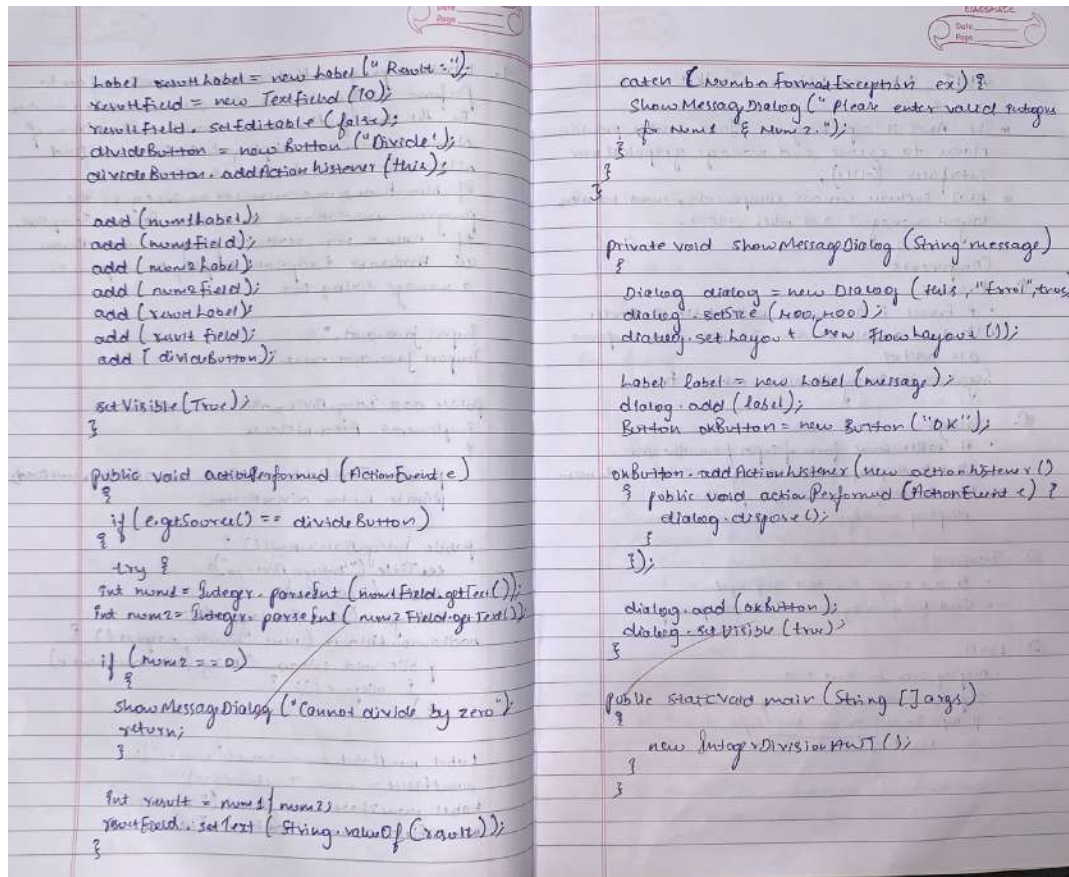 Date
Page
Label resultLabel = new Label (" Result = ");
resultField = new TextField (10);
resultField. setEditable (false);
divideButton = new Button ("Divide");
divideButton. addActionListener (this);
add (num1Label);
add (num1Field);
add (num2Label);
add (num2Field);
add (resultLabel);
add (result Field);
add ( divideButton);
setVisible (True);
}
public void actionPerformed (ActionEvent e)
{
if (e.getSource() == divideButton)
{
try {
int num1 = Integer. parseInt (num1Field.getText());
int num2 = Integer. parseInt ( num2 Field.getText());
if (num2 == 0)
{
showMessageDialog ("Cannot divide by zero");
return;
}
int result = num1 / num2;
resultField. setText ( String.valueOf (result));
}
CLASSMATE
Date
Page
catch (Number Format Exception ex) {
Show Message Dialog (" Please enter valid integers
for Num1 & Num 2.");
}
}
}
private void showMessageDialog (String message)
{
Dialog dialog = new Dialog ( this , "Error", true
dialog. setSize (400, 400);
dialog. set Layout (new FlowLayout ());
Label label = new Label (message);
dialog. add (label);
Button okButton = new Button ("OK");
okButton. add ActionListener (new actionListener ()
{ public void actionPerformed (ActionEvent e) {
dialog. dispose ();
}
});
dialog. add (okButton);
dialog. set Visible (true);
}
public static void main (String [] args)
{
new IntegerDivisionAWT ();
}
}